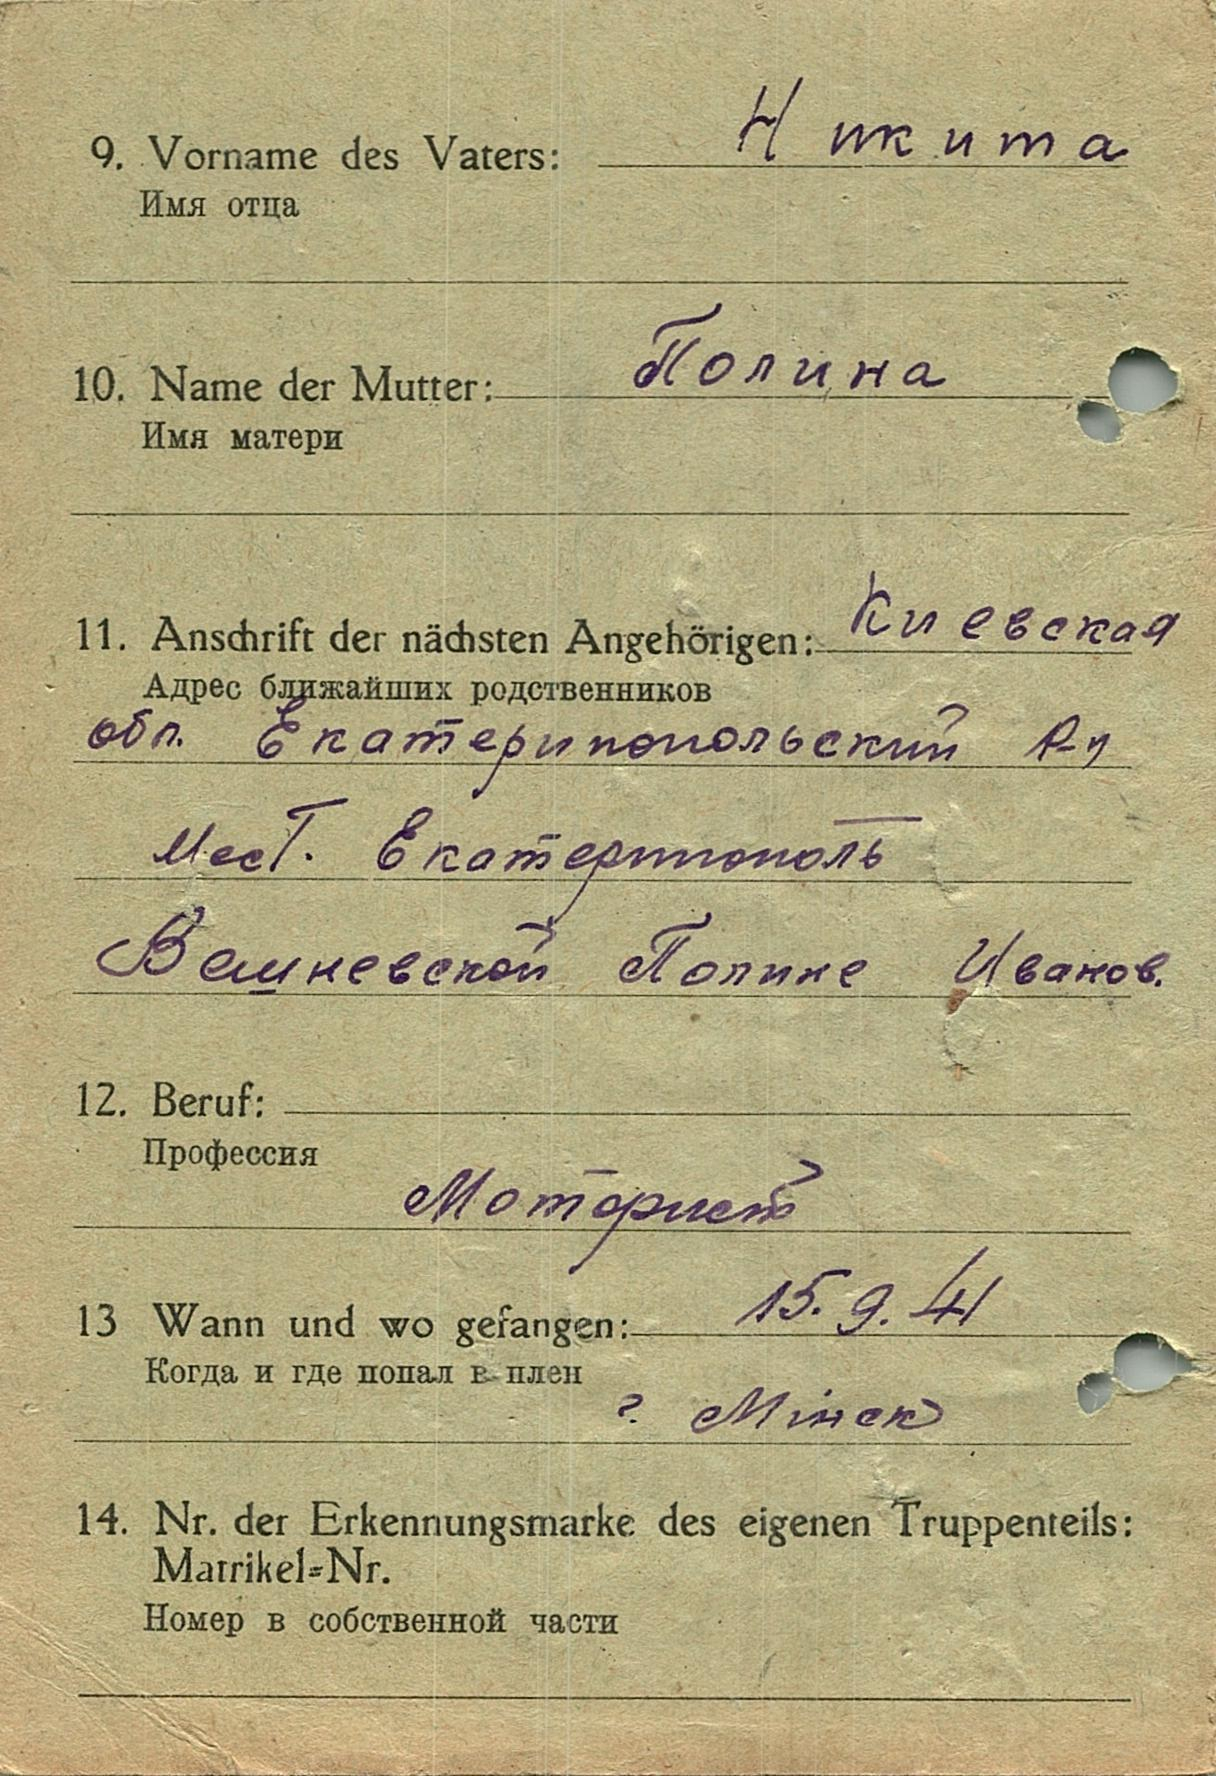 9. Vorname des Vaters: Никита
Имя отца
10. Name der Mutter: Полина
Имя матери
11. Anschrift der nächsten Angehörigen: Киевская
Адрес ближайших родственников
обл. Екатеринопольский р-н
Мест. Екатеринополь
Вешневской Полине Иванов.
12. Beruf:
Профессия
Моторист
13 Wann und wo gefangen: 15.9.41
Когда и где попал в плен
г. Мінск
14. Nr. der Erkennungsmarke des eigenen Truppenteils:
Matrikel=Nr.
Номер в собственной части